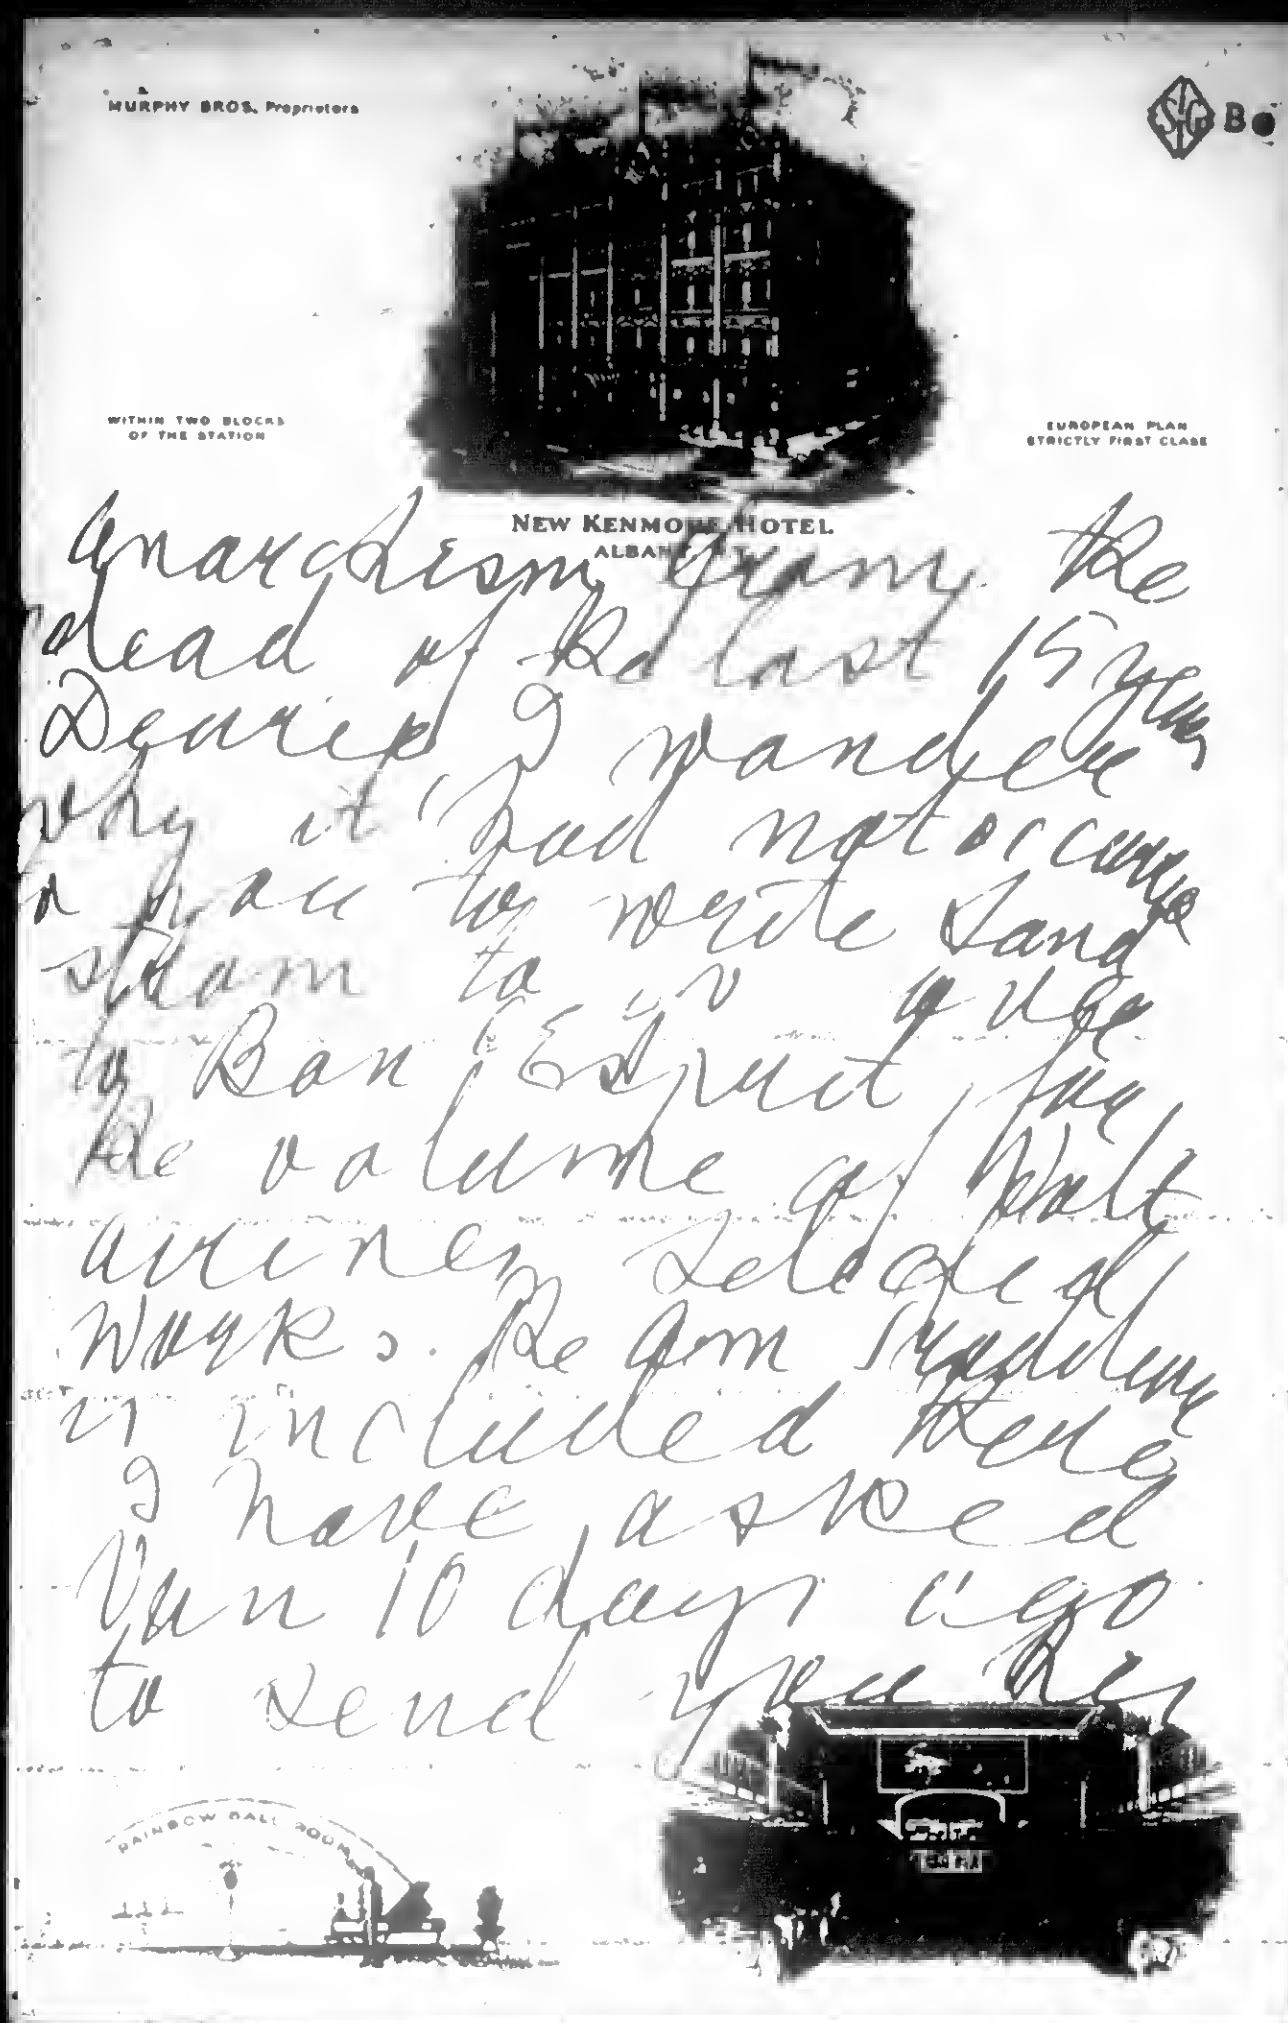 MURPHY BROS. Proprietors
WITHIN TWO BLOCKS
OF THE STATION
EUROPEAN PLAN
STRICTLY FIRST CLASS
NEW KENMORE HOTEL
ALBANY
Anarchism from the
dead of the last 15 years
Dearie, I wonder
why it had not occurred
to you to write Sand
strom to
to Bon Esprit for
the volume of Volt
airine selected
Works. The Dom
is included there
I have asked
Van 10 days ago
to send you his
RAINBOW BALL ROOM